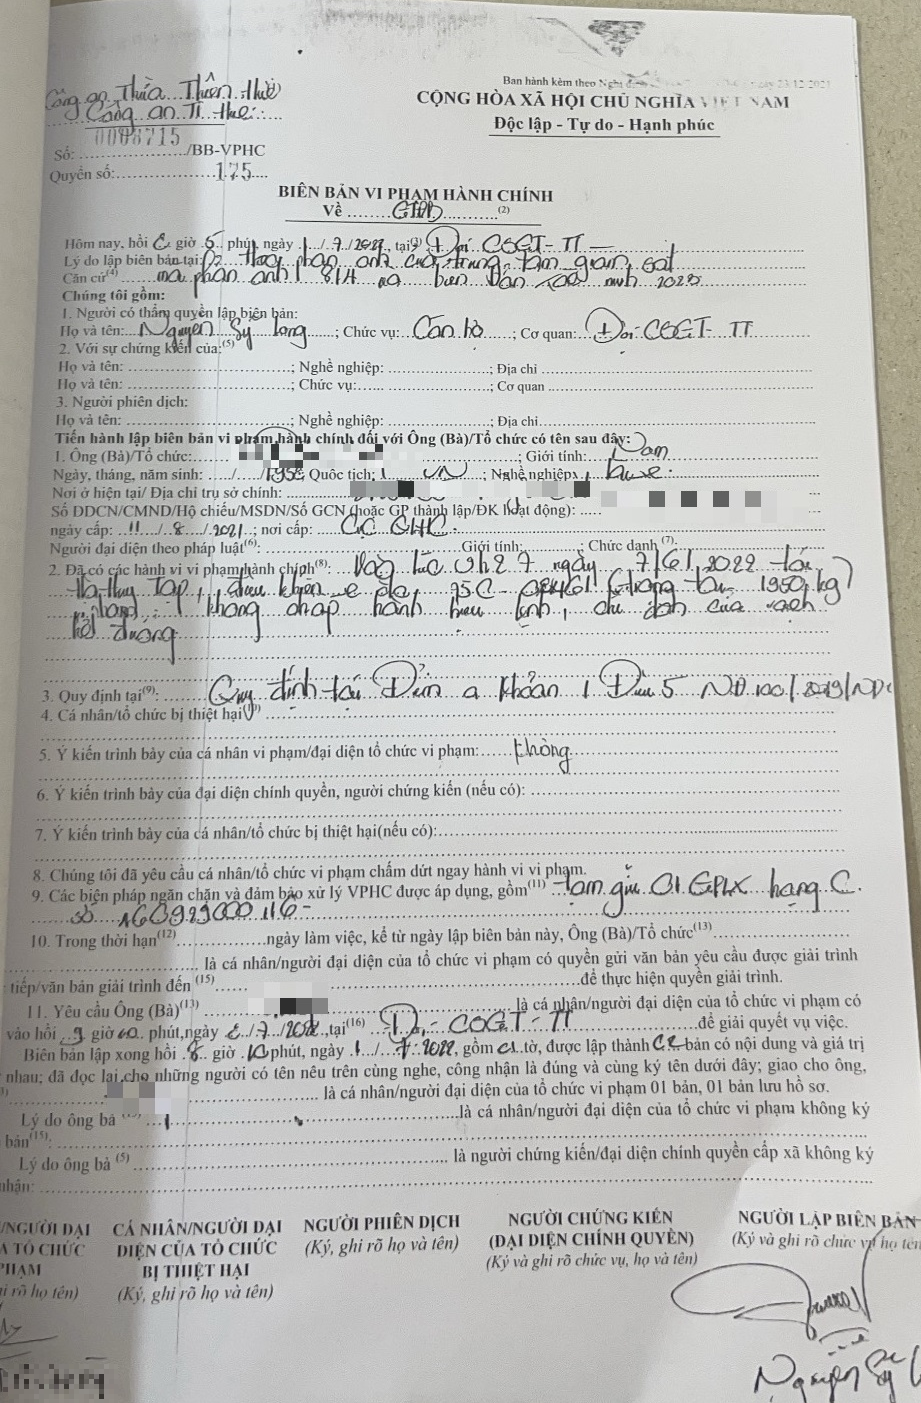 Công an Thừa Thiên Huế
Công an TP Huế
Ban hành kèm theo Nghị 23/12/2021
CỘNG HÒA XÃ HỘI CHỦ NGHĨA VIỆT NAM
Độc lập - Tự do - Hạnh phúc
Số: 0098715/BB-VPHC
Quyển số: 175
BIÊN BẢN VI PHẠM HÀNH CHÍNH
Về GTĐB (2)
Hôm nay, hồi giờ 5 phút, ngày 1/7/2022, tại(3) Đội CSGT-TT
Lý do lập biên bản tại: phản ánh của trung tâm giám sát
Căn cứ(4) phản ánh và biên bản xác minh
Chúng tôi gồm:
1. Người có thẩm quyền lập biên bản:
Họ và tên: Nguyễn Sỹ; Chức vụ: Cán bộ; Cơ quan: Đội CSGT-TT
2. Với sự chứng kiến của:(5)
Họ và tên: ; Nghề nghiệp: ; Địa chỉ
Họ và tên: ; Chức vụ: ; Cơ quan
3. Người phiên dịch:
Họ và tên: ; Nghề nghiệp: ; Địa chỉ
Tiến hành lập biên bản vi phạm hành chính đối với Ông (Bà)/Tổ chức có tên sau đây:
1. Ông (Bà)/Tổ chức: ; Giới tính: Nam
Ngày, tháng, năm sinh: / / ; Quốc tịch: VN; Nghề nghiệp: lái xe
Nơi ở hiện tại/ Địa chỉ trụ sở chính:
Số ĐDCN/CMND/Hộ chiếu/MSDN/Số GCN (hoặc GP thành lập/ĐK hoạt động):
ngày cấp: 11/8/2021; nơi cấp: Cục CSHC
Người đại diện theo pháp luật(6): Giới tính: ; Chức danh (7):
2. Đã có các hành vi vi phạm hành chính(8): Vào lúc ngày 7/6/2022 tại
Hà Huy Tập, điều khiển xe 75C- (trọng tải 1950kg)
không chấp hành hiệu lệnh, chỉ dẫn của vạch
kẻ đường
3. Quy định tại(9): Quy định tại Điểm a Khoản 1 Điều 5 NĐ 100/2019/NĐ
4. Cá nhân/tổ chức bị thiệt hại
5. Ý kiến trình bày của cá nhân vi phạm/đại diện tổ chức vi phạm: không
6. Ý kiến trình bày của đại diện chính quyền, người chứng kiến (nếu có):
7. Ý kiến trình bày của cá nhân/tổ chức bị thiệt hại(nếu có):
8. Chúng tôi đã yêu cầu cá nhân/tổ chức vi phạm chấm dứt ngay hành vi vi phạm.
9. Các biện pháp ngăn chặn và đảm bảo xử lý VPHC được áp dụng, gồm(11) tạm giữ 01 GPLX hạng C.
số
10. Trong thời hạn(12) ngày làm việc, kể từ ngày lập biên bản này, Ông (Bà)/Tổ chức(13)
là cá nhân/người đại diện của tổ chức vi phạm có quyền gửi văn bản yêu cầu được giải trình
tiếp/văn bản giải trình đến (15) để thực hiện quyền giải trình.
11. Yêu cầu Ông (Bà)(13) là cá nhân/người đại diện của tổ chức vi phạm có
vào hồi 9 giờ 00 phút, ngày /7/2022, tại(16) Đội CSGT-TT để giải quyết vụ việc.
Biên bản lập xong hồi 8 giờ 10 phút, ngày 1/7/2022, gồm 01 tờ, được lập thành 02 bản có nội dung và giá trị
nhau; đã đọc lại cho những người có tên nêu trên cùng nghe, công nhận là đúng và cùng ký tên dưới đây; giao cho ông,
là cá nhân/người đại diện của tổ chức vi phạm 01 bản, 01 bản lưu hồ sơ.
Lý do ông bà là cá nhân/người đại diện của tổ chức vi phạm không ký
bản(15):
Lý do ông bà (5) là người chứng kiến/đại diện chính quyền cấp xã không ký
nhận:
/NGƯỜI ĐẠI CÁ NHÂN/NGƯỜI ĐẠI NGƯỜI PHIÊN DỊCH NGƯỜI CHỨNG KIẾN NGƯỜI LẬP BIÊN BẢN
A TỔ CHỨC DIỆN CỦA TỔ CHỨC (Ký, ghi rõ họ và tên) (ĐẠI DIỆN CHÍNH QUYỀN) (Ký và ghi rõ chức vụ họ tên
PHẠM BỊ THIỆT HẠI (Ký và ghi rõ chức vụ, họ và tên)
hi rõ họ tên) (Ký, ghi rõ họ và tên)
Nguyễn Sỹ